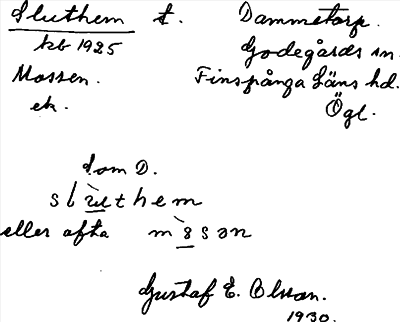 Sluthem t. Dammetorp.
kb 1925 Godegårds sn
Mossen. Finspånga Läns hd.
ek. Ögl.
som D.
slùthem
eller ofta mòsən
Gustaf E. Olsson.
1930.